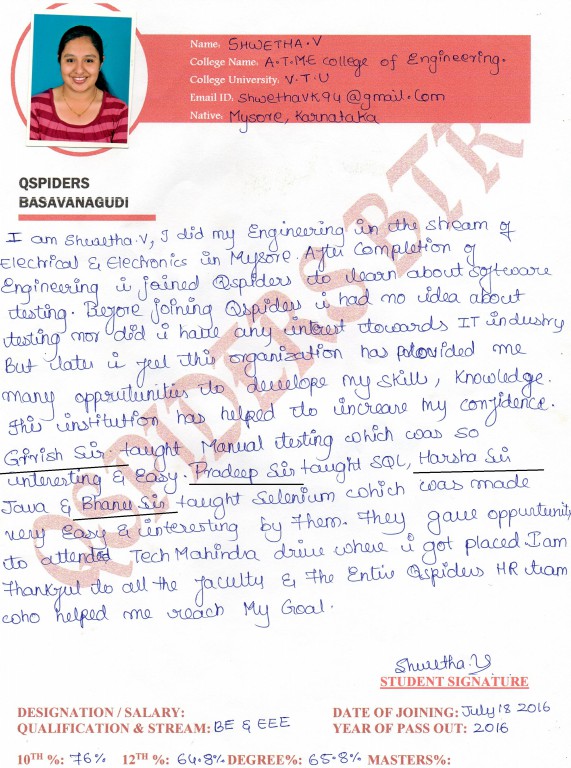 Name: SHWETHA.V
College Name: A.T.M.E College of Engineering.
College University: V.T.U
Email ID: shwethavk94@gmail.com
Native: Mysore, Karnataka
QSPIDERS
BASAVANAGUDI
QSPIDERS BTR
I am Shwetha.V, I did my Engineering in the stream of
Electrical & Electronics in Mysore. After Completion of
Engineering i joined Qspiders to learn about software
testing. Before joining Qspiders i had no idea about
testing nor did i have any intrest towards IT industry
But later i feel this organization has provided me
many opprutunities to develope my skill, Knowledge.
This institution has helped to increase my confidence.
Girish Sir taught Manual testing which was so
interesting & Easy. Pradeep Sir taught SQL, Harsha Sir
Java & Bhanu Sir taught Selenium which was made
very Easy & interesting by Them. They gave oppurtunity
to attended Tech Mahindra drive where i got placed. I am
Thankful to all the faculty & The Entire Qspiders HR team
who helped me reach My Goal.
Shwetha.V
STUDENT SIGNATURE
DESIGNATION / SALARY:
DATE OF JOINING: July 18 2016
QUALIFICATION & STREAM: BE & EEE
YEAR OF PASS OUT: 2016
10TH %: 76% 12TH %: 64.8% DEGREE%: 65.8% MASTERS%: